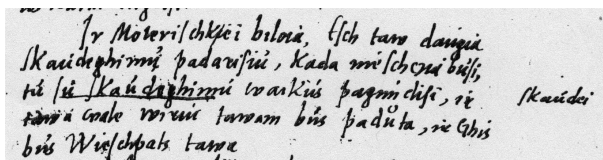 Ir Moterischkiei biloia, Esch taw daugia
skaudeghimų padarisiu, kada nieschcza busi,
tu su skaudeghimu waikus pagimdisi, ir skaudei
tawa wale wirui tawam bus padůta, ir Ghis
bus Wieschpats tawa